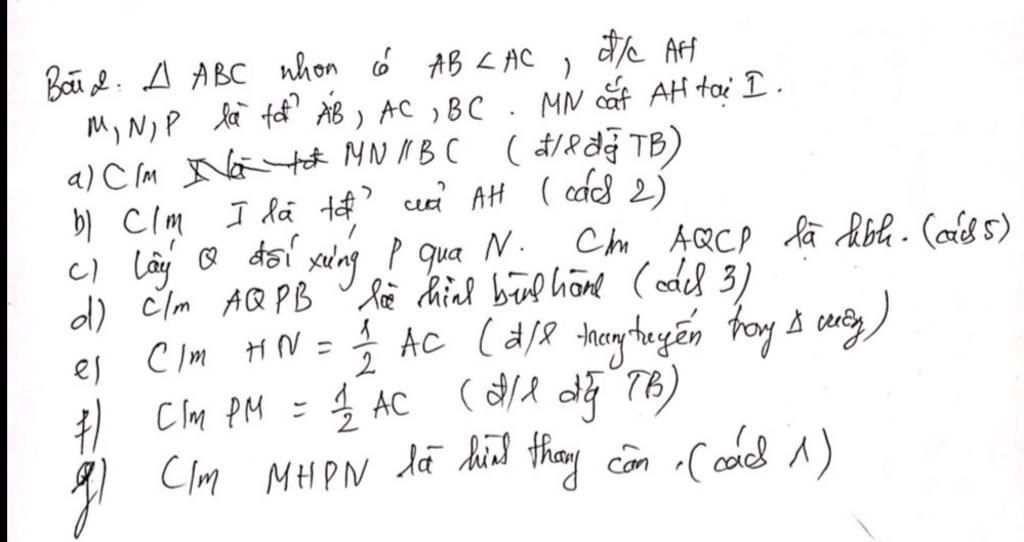 Bài 2. Δ ABC nhọn có AB < AC, đ/c AH
M, N, P là tđ² AB, AC, BC. MN cắt AH tại I.
a) C/m MN // BC (đ/l đg TB)
b) C/m I là tđ² của AH (cách 2)
c) Lấy Q đối xứng P qua N. C/m AQCP là hbh. (cách 5)
d) C/m AQPB là hình bình hành (cách 3)
e) C/m HN = 1/2 AC (đ/l trung tuyến trong Δ vuông)
f) C/m PM = 1/2 AC (đ/l đg TB)
g) C/m MHPN là hình thang cân. (cách 1)